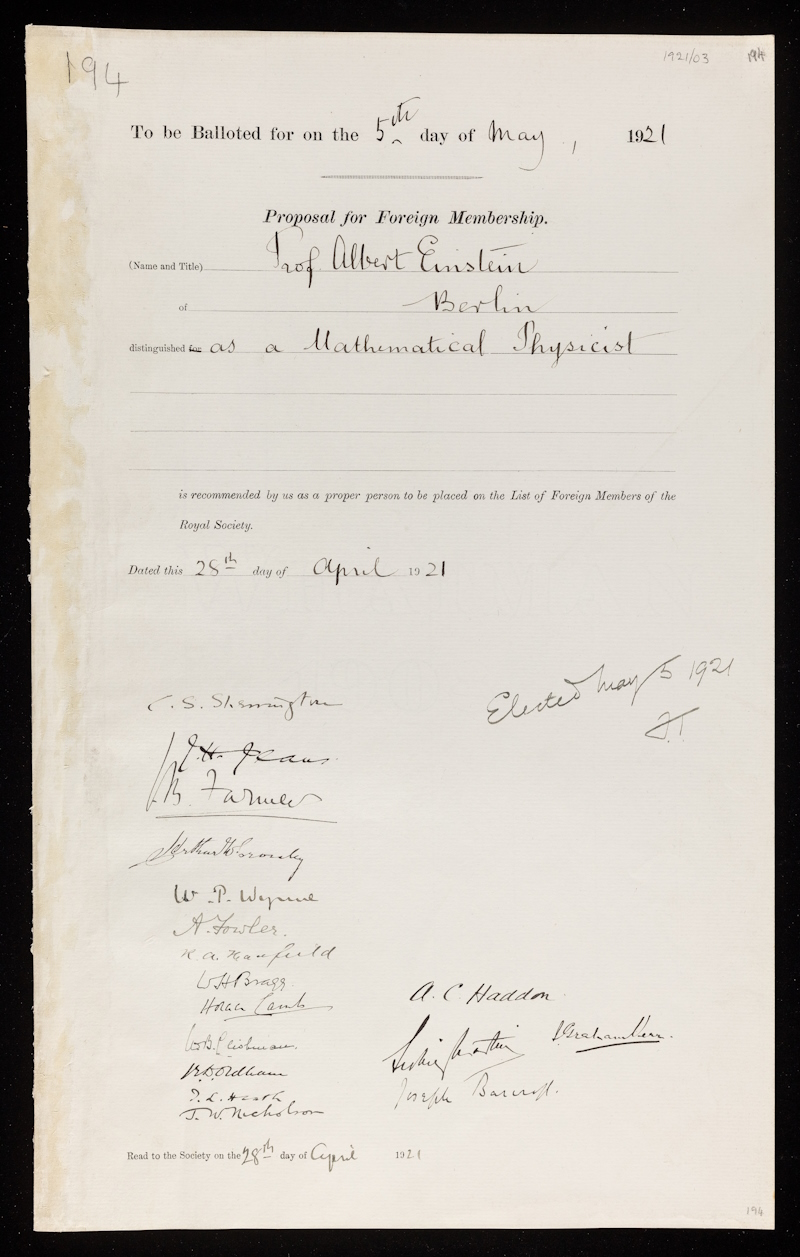 194
1921/03
194
To be Balloted for on the 5th day of May, 1921
Proposal for Foreign Membership.
(Name and Title) Prof Albert Einstein
of Berlin
distinguished for as a Mathematical Physicist
is recommended by us as a proper person to be placed on the List of Foreign Members of the
Royal Society.
Dated this 28th day of April 1921
Elected May 5 1921
C. S. Sherrington
J. H. Jeans
J. B. Farmer
W. P. Wynne
A. Fowler.
W H Bragg.
Horace Lamb
R. D. Oldham
T. L. Heath
J. W. Nicholson
A. C. Haddon
J Graham Kerr.
Joseph Barcroft.
Read to the Society on the 28th day of April 1921
194